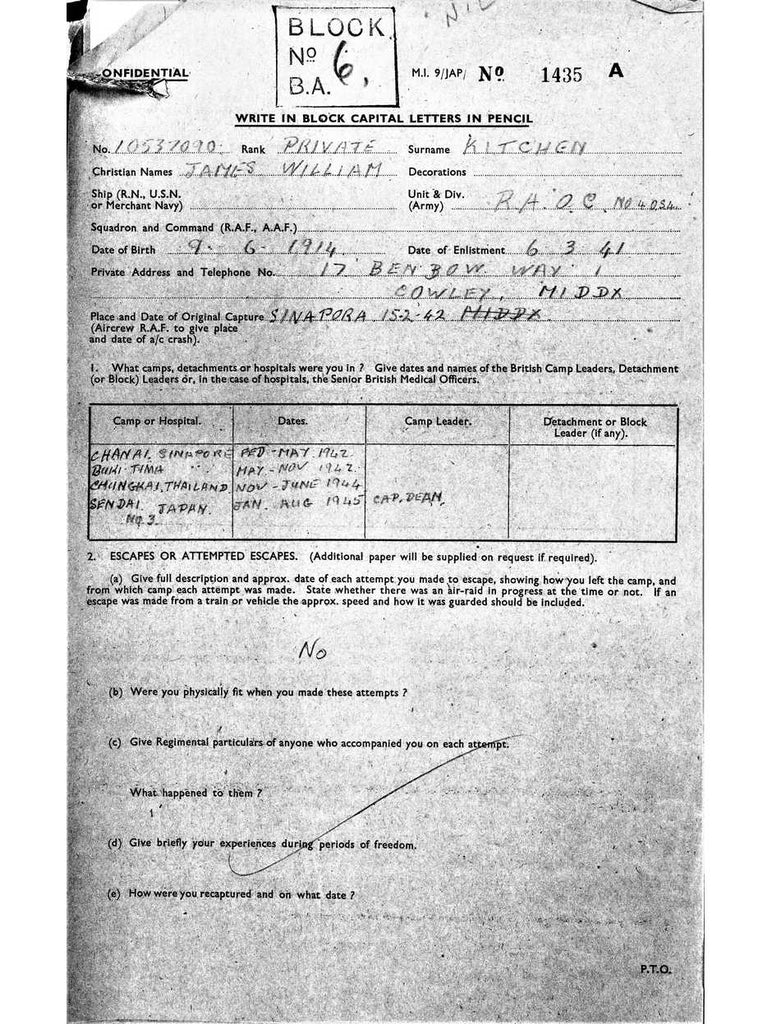 NIL
BLOCK
Nº 6.
B.A.
ONFIDENTIAL
M.I. 9/JAP/ Nº 1435 A
WRITE IN BLOCK CAPITAL LETTERS IN PENCIL
No. 10537090. Rank PRIVATE Surname KITCHEN
Christian Names JAMES WILLIAM Decorations
Ship (R.N., U.S.N. or Merchant Navy) Unit & Div. (Army) R.A.O.C. NO 4 O.S.4.
Squadron and Command (R.A.F., A.A.F.)
Date of Birth 9. 6. 1914 Date of Enlistment 6 3 41
Private Address and Telephone No. 17 BENBOW WAY
COWLEY, MIDDX
Place and Date of Original Capture SINAPORA 15-2-42 MIDDX.
(Aircrew R.A.F. to give place
and date of a/c crash).
1. What camps, detachments or hospitals were you in ? Give dates and names of the British Camp Leaders, Detachment
(or Block) Leaders or, in the case of hospitals, the Senior British Medical Officers.
Camp or Hospital. Dates. Camp Leader. Detachment or Block
Leader (if any).
CHANAI. SINAPORE FED-MAY 1942
BUKI-TIMA " MAY-NOV 1942.
CHUNGKAI, THAILAND NOV-JUNE 1944
SENDAI JAPAN. JAN. AUG 1945 CAP. DEAN.
NO 3.
2. ESCAPES OR ATTEMPTED ESCAPES. (Additional paper will be supplied on request if required).
(a) Give full description and approx. date of each attempt you made to escape, showing how you left the camp, and
from which camp each attempt was made. State whether there was an air-raid in progress at the time or not. If an
escape was made from a train or vehicle the approx. speed and how it was guarded should be included.
No
(b) Were you physically fit when you made these attempts ?
(c) Give Regimental particulars of anyone who accompanied you on each attempt.
What happened to them ?
(d) Give briefly your experiences during periods of freedom.
(e) How were you recaptured and on what date ?
P.T.O.